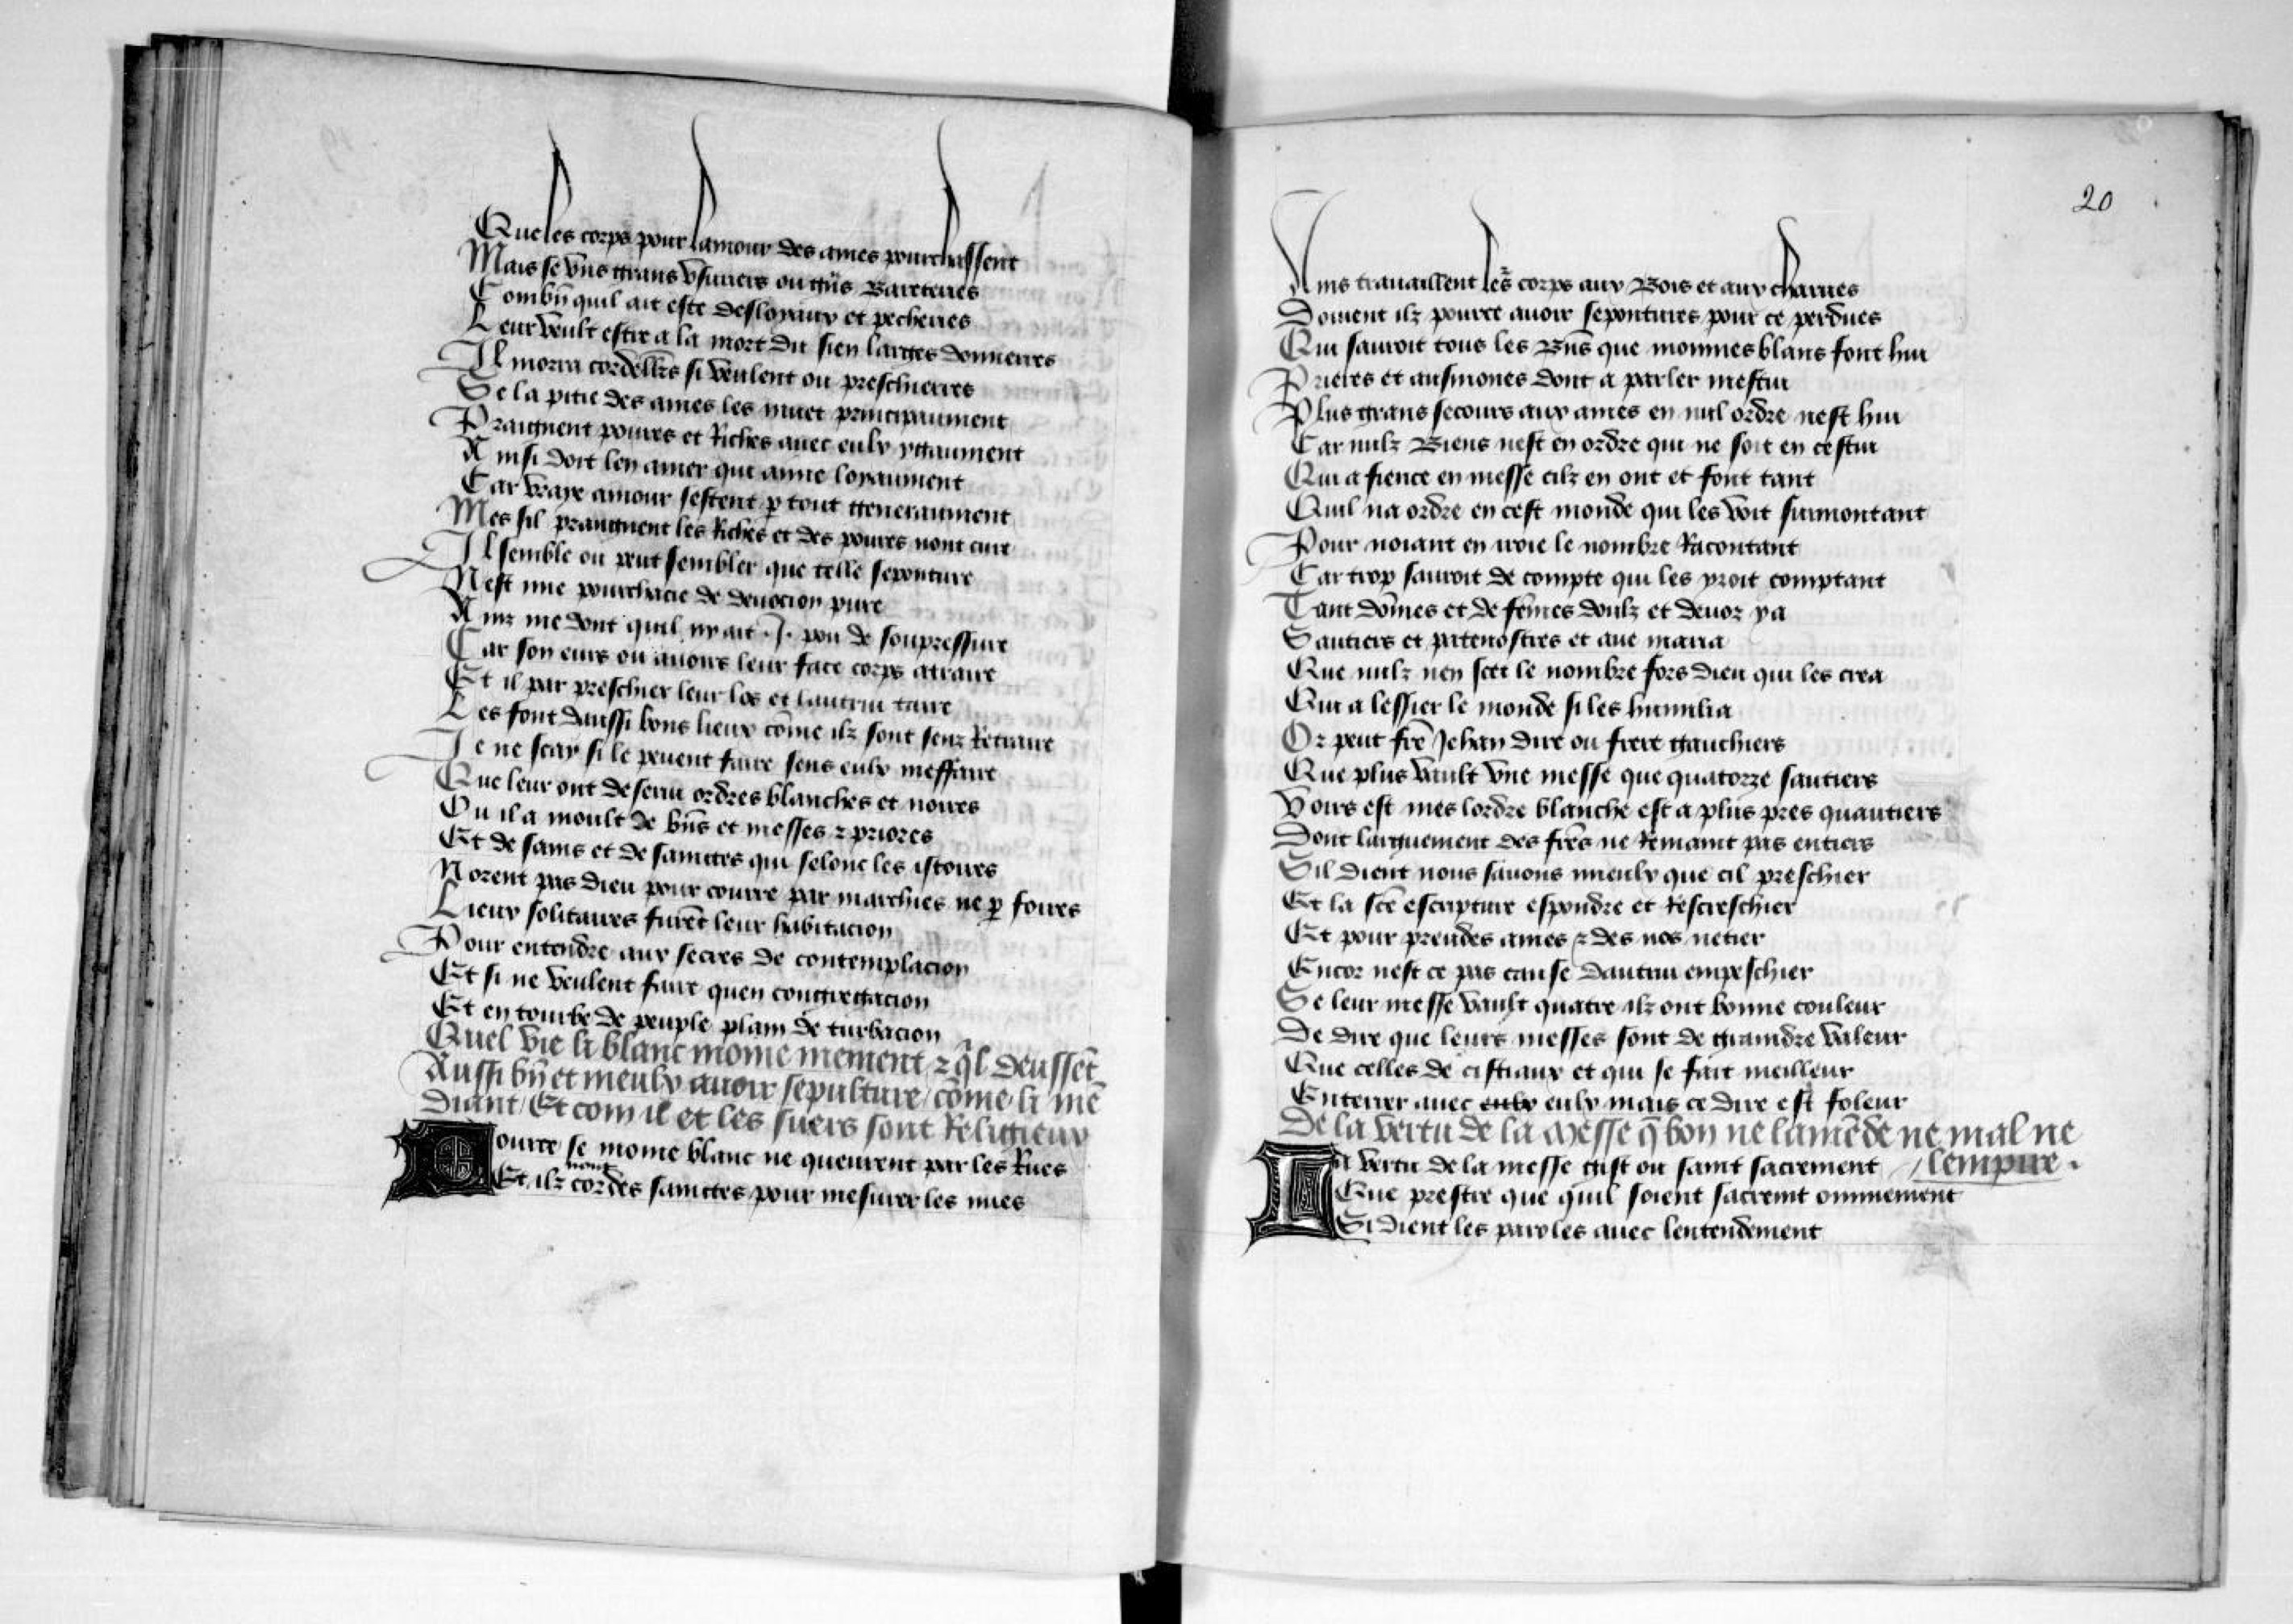 Que les corps pour lamour des ames pourchassent
Mais se vns grans vsuriers ou gñs Bareterres
Combñ quil ait este desloyaux et pecherres
Leur veult estre a la mort du sien larges donnerres
Il morra cordellrs si veulent ou preschierres
Se la pitie des ames les muet principaument
Praignent poures et Riches auec eulx ygaument
Ainsi doit len amer qui aime loyaument
Car vraye amour sestent p tout generaument
Mes sil praingnent les Riches et des poures nont cure
Il semble ou peut sembler que telle sepouture
Nest mie pourchacie de deuocion pure
Ainz me dout quil ny ait .J. pou de soupressure
Car son eurs ou auoirs leur face corps atraire
Et il par preschier leur los et lautrui taire
Les font daussi bons lieux cõme ilz sont senz Retraire
Je ne scay si le peuent faire sens eulx meffaire
Que leur ont deserui ordres blanches et noires
Ou il a moult de bñs et messes z priores
Et de sains et de sainctes qui selonc les istoires
Norent pas dieu pour courre par marchies ne p foires
Lieux solitaires furẽt leur habitacion
Pour entendre aux secres de contemplacion
Et si ne veulent faire quen congregacion
Et en tourbe de peuple plain de turbacion
Quel vie li blanc moine mement z ql deussẽt
Aussi bñ et meulx auoir sepulture cõme li mẽ
diant / Et com il et les suers sont Religieux
Pource se moine blanc ne queurent par les Rues
Et ilz nont cordes sainctes pour mesurer les nues
20
Ains trauaillent les corps aux Bois et aux charrues
Doiuent ilz pource auoir sepoutures pour ce perdues
Qui sauroit tous les Bñs que moinnes blans font hui
Prieres et ausmones dont a parler mestui
Plus grans secours aux ames en nul ordre nest hui
Car nulz Biens nest en ordre qui ne soit en cestui
Qui a fience en messe cilz en ont et font tant
Quil na ordre en cest monde qui les voit surmontant
Pour noiant en iroie le nombre Racontant
Car trop sauroit de compte qui les yroit comptant
Tant dõmes et de fẽmes doulz et deuoz ya
Sautiers et patenostres et aue maria
Que nulz nen scet le nombre fors dieu qui les crea
Qui a lessier le monde si les humilia
Or peut frẽ Jehan dire ou frere gauchiers
Que plus vault vne messe que quatorze sautiers
Voirs est mes lordre blanche est a plus pres quautiers
Dont larguement des frẽs ne Remaint pas entiers
Sil dient nous sauons mieulx que cil preschier
Et la scẽ escripture espondre et Rescreschier
Et pour prendes ames z des nos netier
Encor nest ce pas cause dautrui empeschier
Se leur messe vault quatre ilz ont bonne couleur
De dire que leurs messes sont de graindre valeur
Que celles de cistiaux et qui se fait meilleur
Enterrer auec eulx eulx mais ce dire est foleur
De la vertu de la messe q bon ne lamẽde ne mal ne
lempire .
La vertu de la messe gist ou saint sacrement
Que prestre que quil soient sacreint ommement
Si dient les paroles auec lentendement